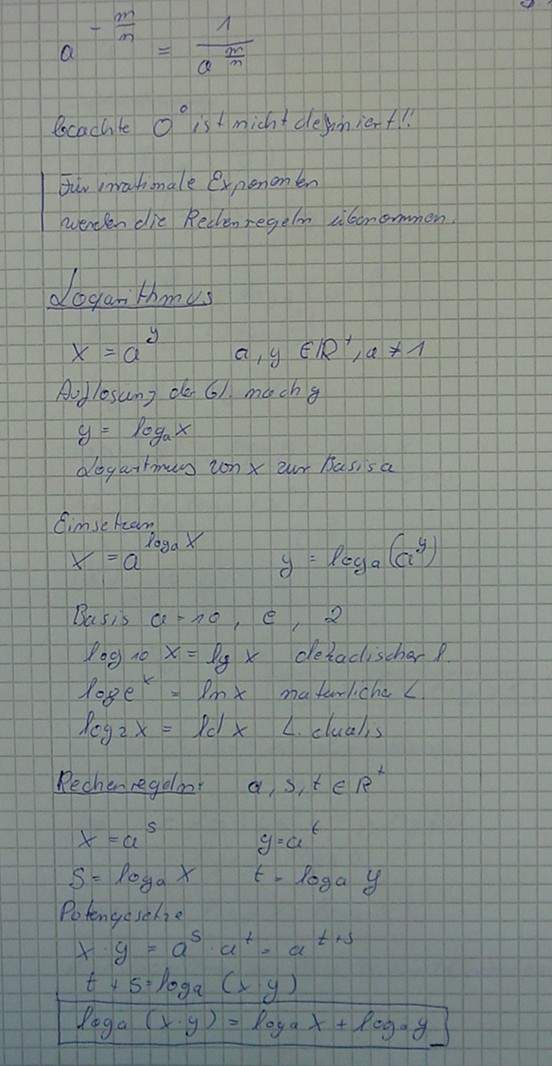 a^(-m/n) = 1/a^(m/n)
beachte 0^0 ist nicht definiert!!
Für irrationale Exponenten
werden die Rechenregeln übernommen.
Logarithmus
x = a^y a, y ∈ ℝ^+, a ≠ 1
Auflösung der Gl. nach y
y = log_a x
Logaritmus von x zur Basis a
Einsetzen
x = a^(log_a x) y = log_a (a^y)
Basis a = 10, e, 2
log_10 x = lg x dekadischer l.
log_e x = ln x natürlicher L.
log_2 x = ld x L. dualis
Rechenregeln: a, s, t ∈ ℝ^+
x = a^s y = a^t
s = log_a x t = log_a y
Potenzgesetze
x · y = a^s · a^t = a^(t+s)
t + s = log_a (x · y)
log_a (x · y) = log_a x + log_a y